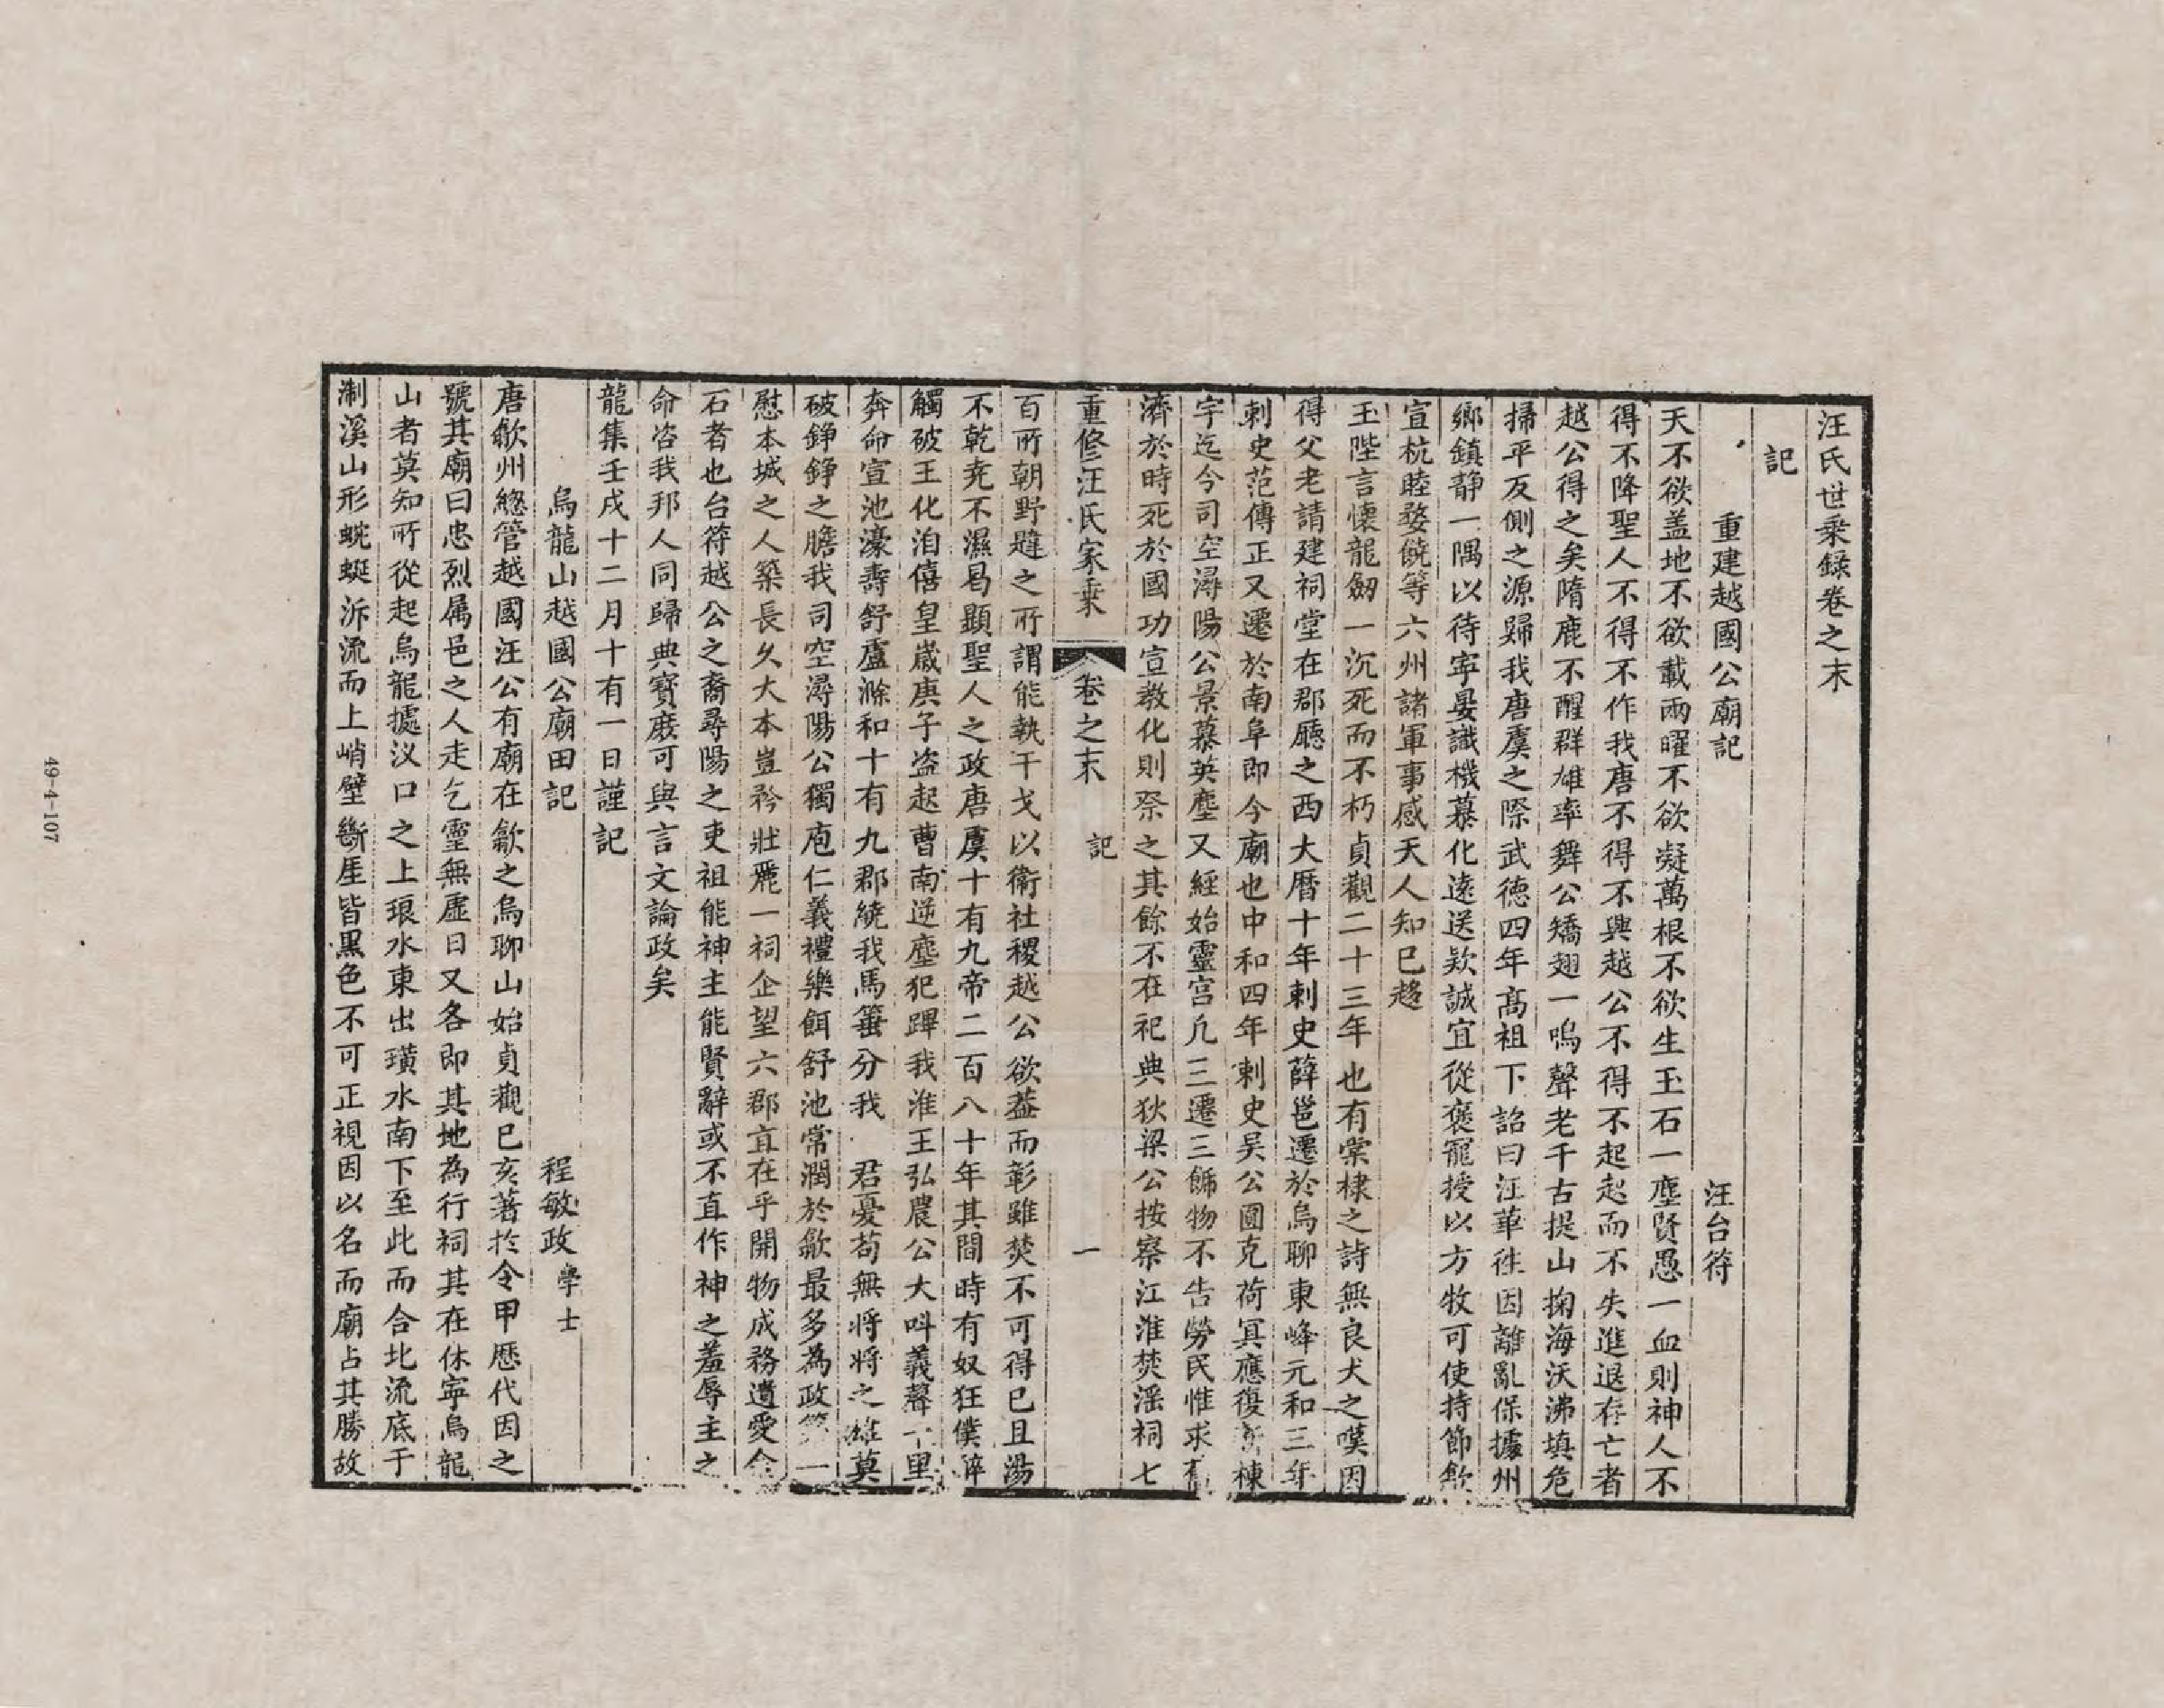 汪氏世乘錄卷之末
記
重建越國公廟記
汪台符
天不欲盖地不欲載兩曜不欲凝萬根不欲生玉石一塵賢愚一血則神人不
得不降聖人不得不作我唐不得不興越公不得不起起而不失進退存亡者
越公得之矣隋鹿不醒群雄率舞公矯翅一鳴聲老千古提山掬海沃沸填危
掃平反側之源歸我唐虞之際武德四年髙祖下詔曰汪華徃因離亂保據州
鄉鎮静一隅以待寕晏識機慕化逺送欵誠宜從褒寵授以方牧可使持節歙
宣杭睦婺饒等六州諸軍事感天人知已趍
玉陛言懷龍劒一沉死而不朽貞觀二十三年也有棠棣之詩無良犬之嘆因
得父老請建祠堂在郡廳之西大暦十年刺史薛邕遷於烏聊東峰元和三年
刺史范傳正又遷於南阜即今廟也中和四年刺史吴公圓克荷冥應復棟
宇迄今司空潯陽公景慕英塵又經始靈宫凢三遷三飾物不告勞民惟求
濟於時死於國功宣教化則祭之其餘不在祀典狄梁公按察江淮焚滛祠七
重修汪氏家乘
卷之末
記
一
百所朝野韙之所謂能執干戈以衛社稷越公欲葢而彰雖焚不可得已且湯
不乾尭不濕曷顯聖人之政唐虞十有九帝二百八十年其間時有奴狂僕
觸破王化洎僖皇歳庚子盗起曹南逆塵犯蹕我淮王弘農公大呌義聲里
奔命宣池濠壽舒廬滁和十有九郡繞我馬箠分我 君憂苟無將將之雄莫
破錚錚之膽我司空潯陽公獨庖仁義禮樂餌舒池常潤於歙最多為政一
慰本城之人築長乆大本豈矜壯麗一祠企望六郡亘在乎開物成務遺愛金
石者也台符越公之裔尋陽之吏祖能神主能賢辭或不直作神之羞辱主之
命咨我邦人同歸典寳庻可與言文論政矣
龍集壬戌十二月十有一日謹記
烏龍山越國公廟田記
程敏政學士
唐歙州總管越國汪公有廟在歙之烏聊山始貞觀已亥著扵令甲歴代因之
號其廟曰忠烈属邑之人走乞靈無虚日又各即其地為行祠其在休寕烏龍
山者莫知所從起烏龍據汊口之上琅水東出璜水南下至此而合北流底于
淛溪山形蜿蜒泝流而上峭壁斷厓皆黒色不可正視因以名而廟占其勝故
49-4-107